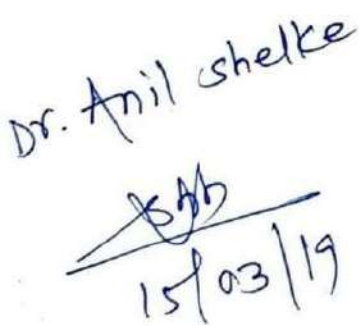 Dr. Anil Shelke
15/03/19